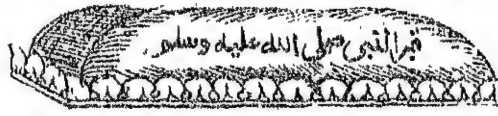 قبر النبي صلى الله عليه وسلم